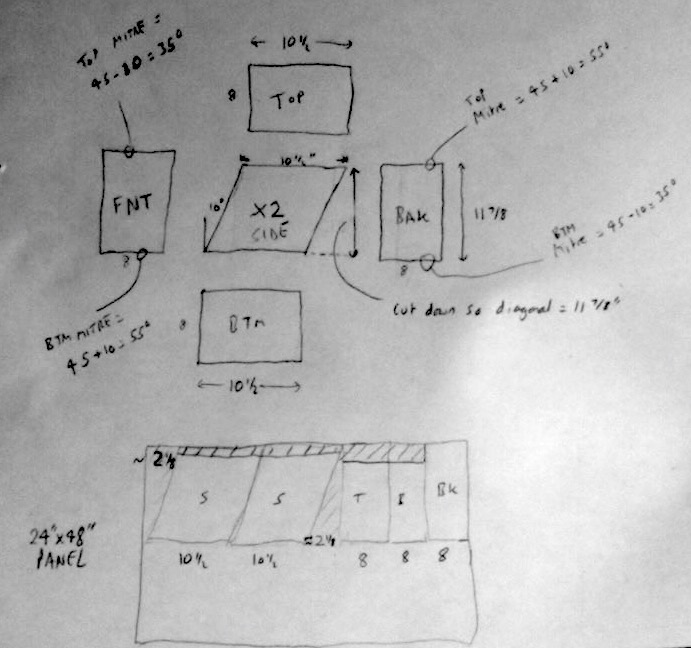 TOP MITRE =
45-80 = 35°
10½
8
TOP
TOP
Mitre = 45+10 = 55°
FNT
8
10½"
10°
X2
SIDE
BAK
8
11 7/8
BTM
Mitre = 45-10 = 35°
BTM MITRE =
45+10 = 55°
8
BTM
10½
Cut down so diagonal = 11 7/8"
24"x48"
PANEL
~ 2⅛
S
S
T
B
BK
≈2⅛
10½
10½
8
8
8